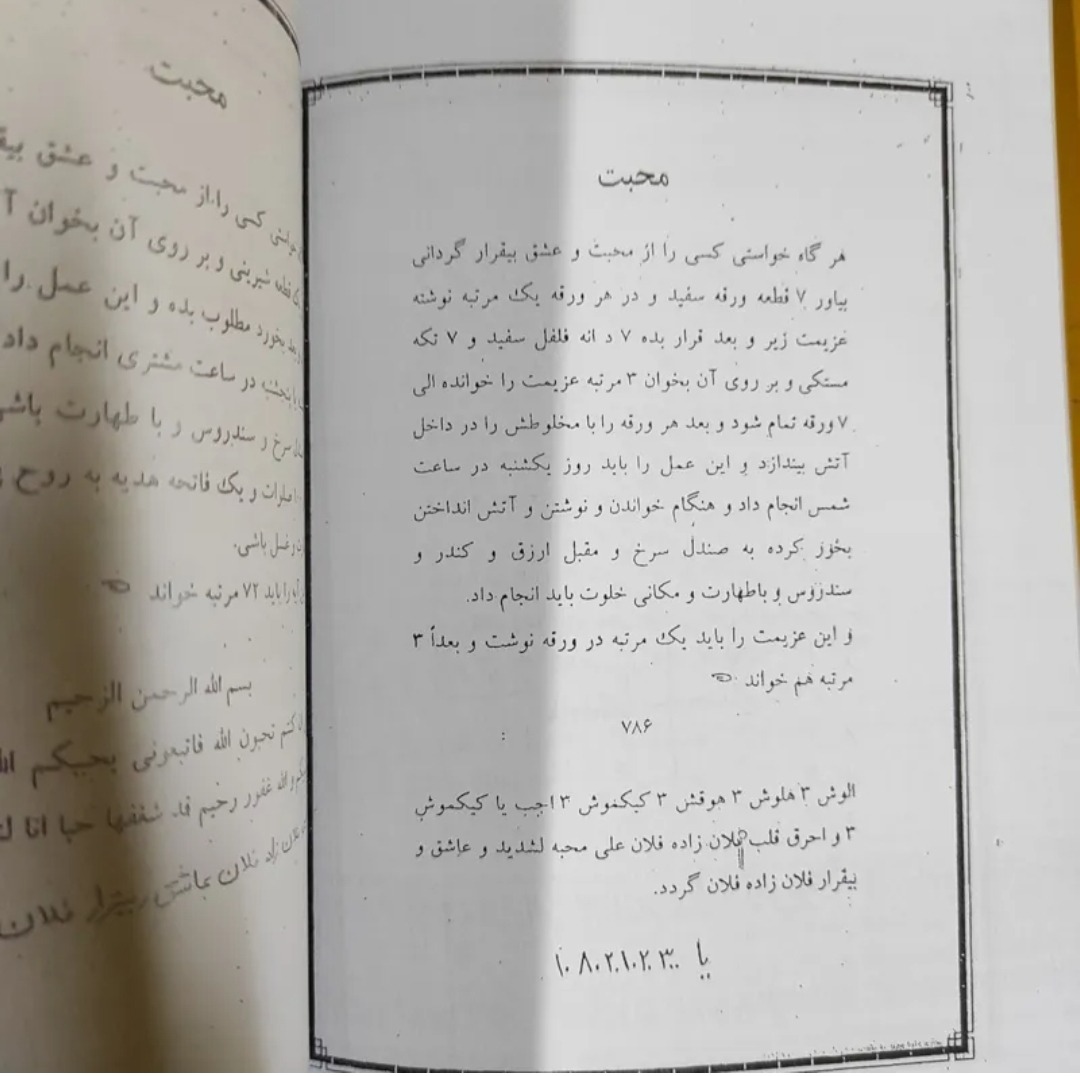 محبت
هر گاه خواستی کسی را از محبت و عشق بیقرار گردانی
بیاور ۷ قطعه ورقه سفید و در هر ورقه یک مرتبه نوشته
عزیمت زیر و بعد قرار بده ۷ د انه فلفل سفید و ۷ تکه
مستکی و بر روی آن بخوان ۳ مرتبه عزیمت را خوانده الی
۷ ورقه تمام شود و بعد هر ورقه را با مخلوطش را در داخل
آتش بیندازد و این عمل را باید روز یکشنبه در ساعت
شمس انجام داد و هنگام خواندن و نوشتن و آتش انداختن
بخور کرده به صندل سرخ و مقبل ارزق و کندر و
سندروس و باطهارت و مکانی خلوت باید انجام داد.
و این عزیمت را باید یک مرتبه در ورقه نوشت و بعداً ۳
مرتبه هم خواند
۷۸۶
الوش ۳ هلوش ۳ هوقش ۳ کیکموش ۳ اجب یا کیکموش
۳ و احرق قلب فلان زاده فلان علی محبه لشدید و عاشق و
بیقرار فلان زاده فلان گردد.
یا
محبت
کسی را از محبت و عشق
قطعه شیرینی و بر روی آن بخوان
بخورد مطلوب بده و این عمل را
در ساعت مشتری انجام داد
سرخ و سندروس و با طهارت
صلوات و یک فاتحه هدیه به روح
و غسل باشی.
را باید ۷۲ مرتبه خواند
بسم الله الرحمن الرحیم
کنتم تحبون الله فاتبعونی یحببکم
والله غفور رحیم قد شغفها حبا انا
فلان زاد فلان بعاشق بیقرار فلان